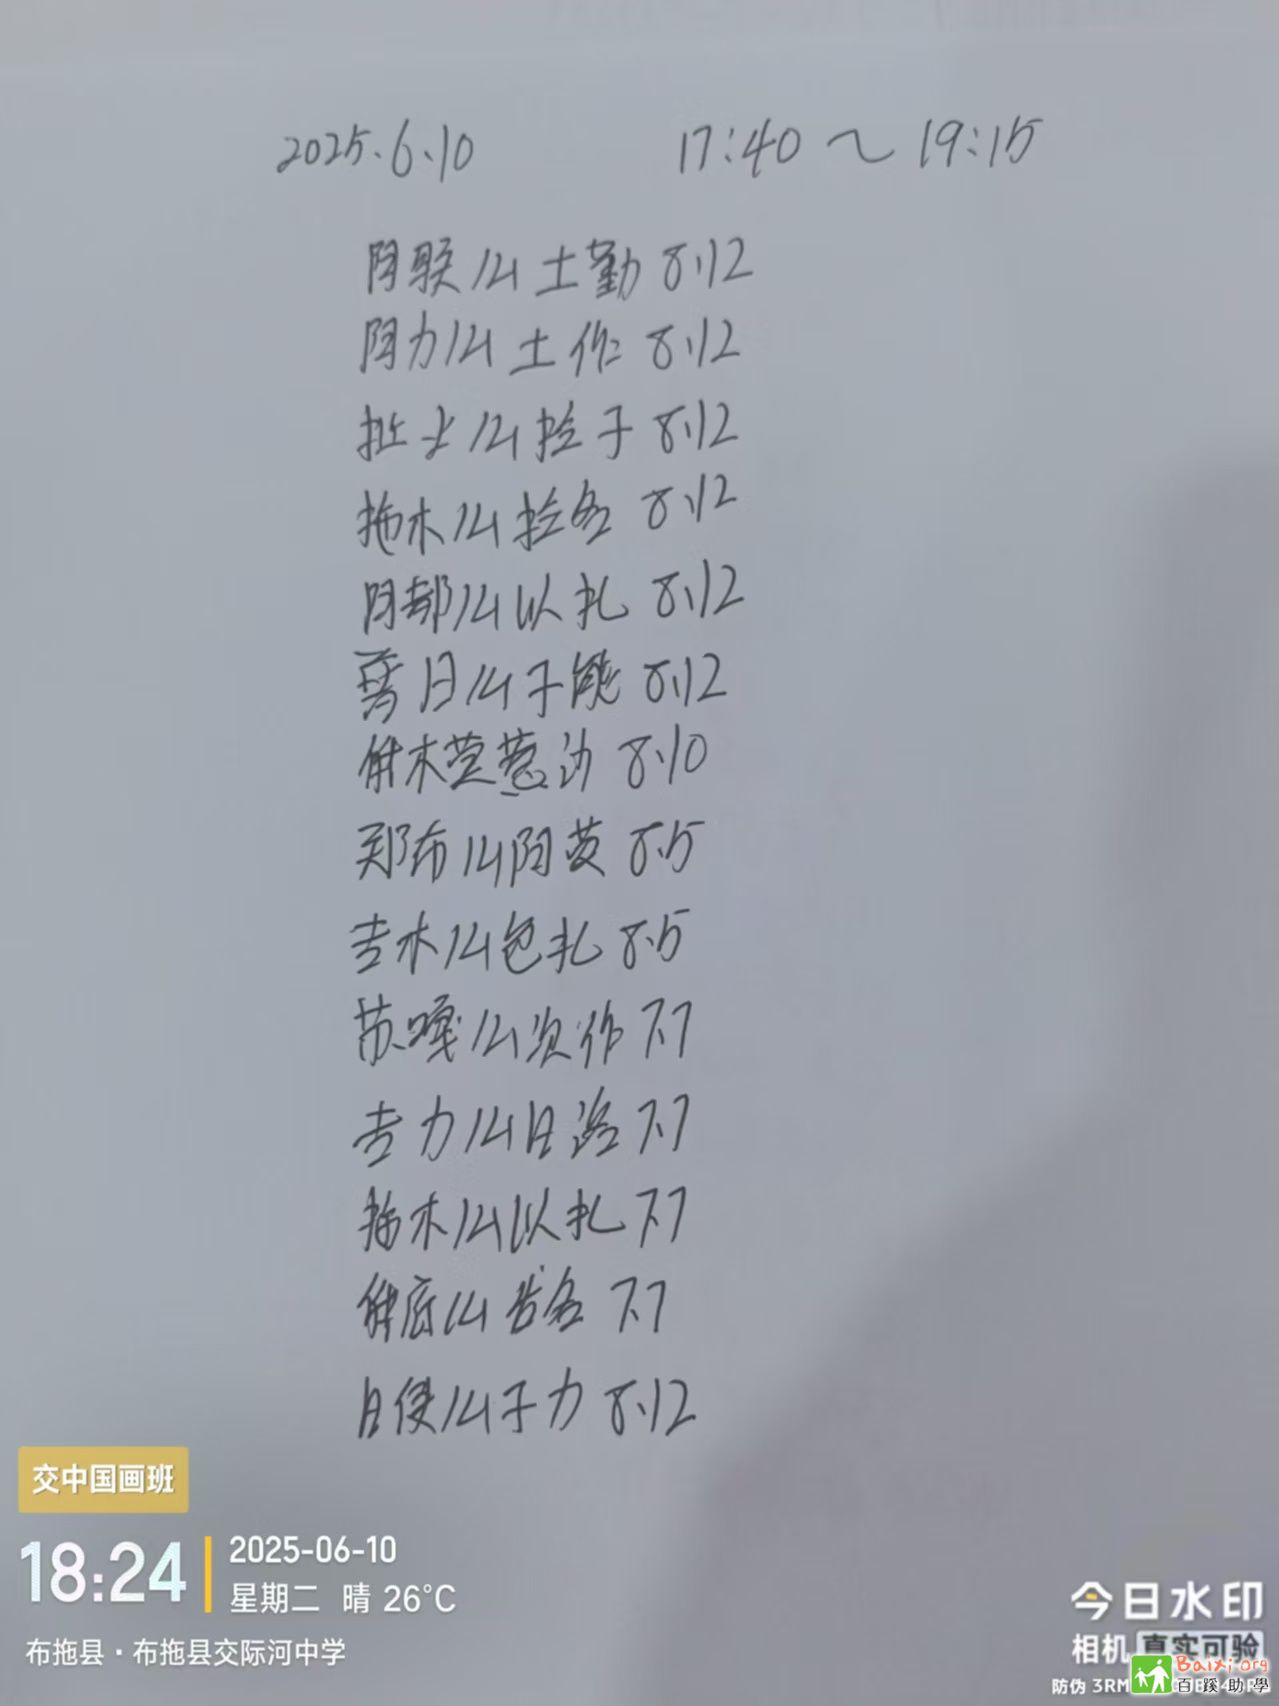 2025.6.10 17:40～19:15
阿联么土勤 8.12
阿力么土作 8.12
么拾子 8.12
拖木么拾各 8.12
阿都么以扎 8.12
日么子能 8.12
木莫惹沙 8.10
郑布么阿英 8.5
吉木么包扎 8.5
苏嘎么次作 7.7
吉力么日洛 7.7
拖木么以扎 7.7
底么各 7.7
日使么子力 8.12
交中国画班
18:24
2025-06-10
星期二 晴 26°C
布拖县·布拖县交际河中学
今日水印
相机 真实可验
Baixi.org
百蹊助學
防伪 3RM